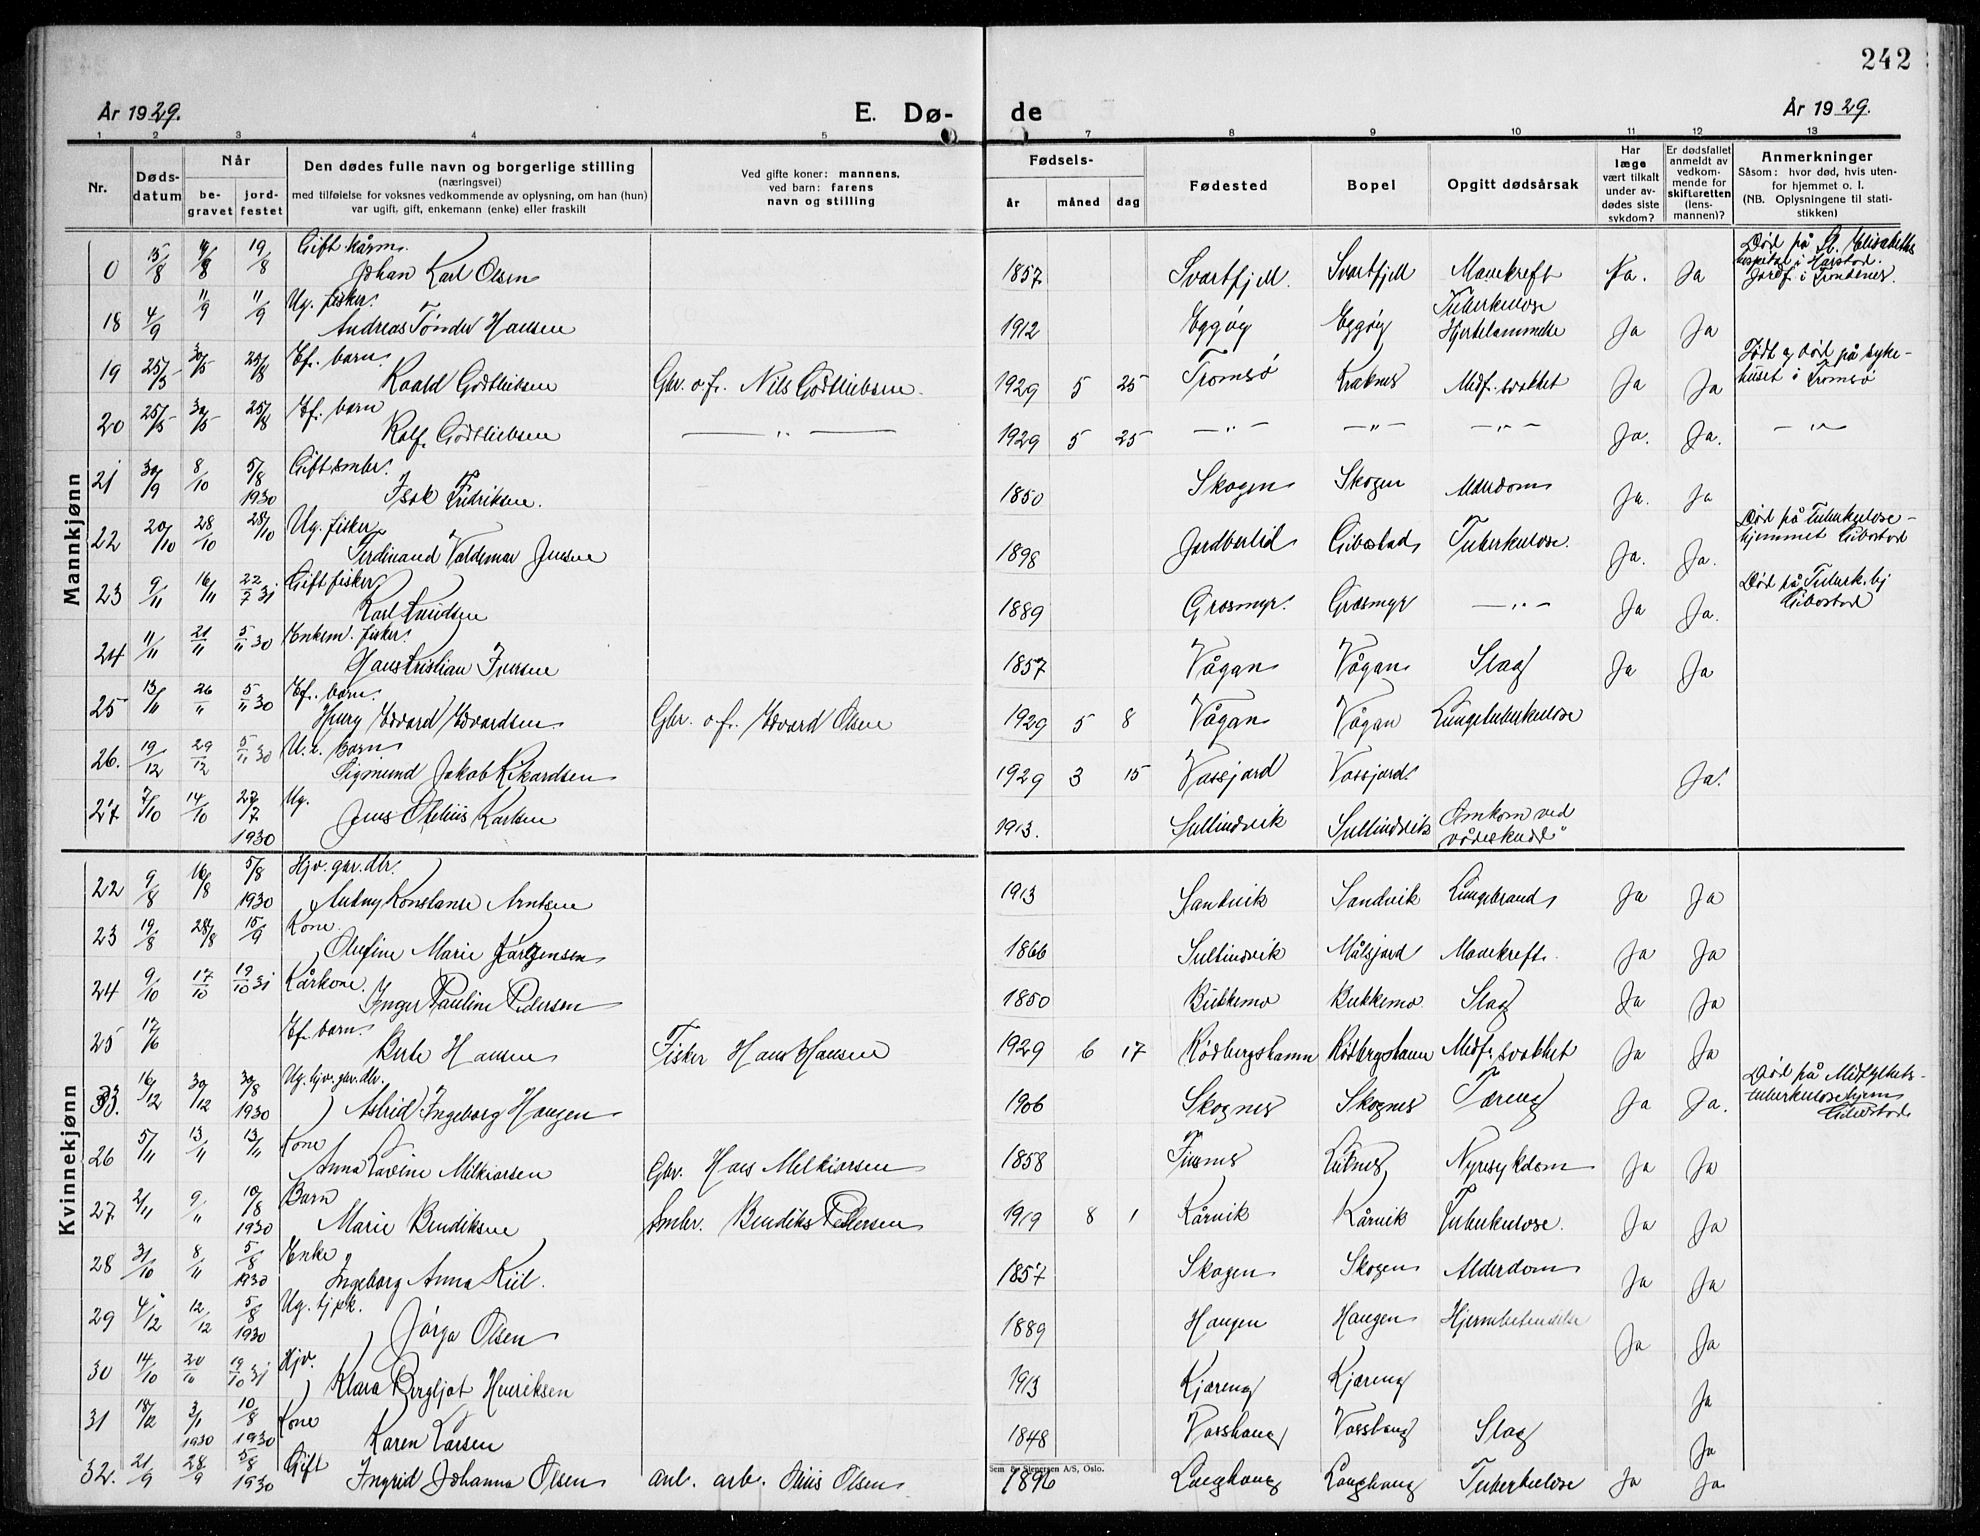 242
År 1929. E. Dø- de År 1929.
1 2 3 4 5 7 8 9 10 11 12 13
Nr. Døds-datum Når be-gravet jord-festet
Den dødes fulle navn og borgerlige stilling
(næringsvei)
med tilføielse for voksnes vedkommende av oplysning, om han (hun)
var ugift, gift, enkemann (enke) eller fraskilt
Ved gifte koner: mannens.
ved barn: farens
navn og stilling
Fødsels-
år måned dag
Fødested Bopel Opgitt dødsårsak
Har læge vært tilkalt under av-dødes siste sykdom?
Er dødsfallet anmeldt av vedkom-mende for skifteretten (lens-mannen)?
Anmerkninger
Såsom: hvor død, hvis uten-
for hjemmet o. l.
(NB. Oplysningene til stati-
stikken)
Mannkjønn
0 15/8 19/8 Gift kårm. Johan Karl Olsen 1857 Svartfjell Svartfjell Mavekreft Ja. Ja Død på St. Elisabeths hospital i Harstad. Jordf. i Trondenes.
18 4/9 11/9 11/9 Ug. fisker. Andreas Tønder Hansen 1912 Eggøy Eggøy Tuberkulose Hjertelammelse Ja Ja
19 25/5 30/5 25/8 Ef. barn. Roald Godtliebsen Gbr. o. f. Nils Godtliebsen 1929 5 25 Tromsø Kraknes Medf. svakhet Ja Ja Født og død på syke-huset i Tromsø
20 25/5 30/5 25/8 Ef. barn Rolf Godtliebsen — „ — 1929 5 25 — „ — — „ — — „ — Ja. Ja. — „ —
21 30/9 8/10 5/8 1930 Gift smbr. Isak Fredriksen. 1850 Skogen Skogen Alderdom Ja. Ja
22 20/10 28/10 28/10 Ug. fisker Ferdinand Valdemar Jensen 1898 Jordbærlid Gibostad Tuberkulose. Ja. Ja. Død på Tuberkulose-hjemmet Gibostad
23 9/11 16/11 22/7 31 Gift fisker Karl Knudsen 1889 Grasmyr. Grasmyr — „ — Ja Ja. Død på Tuberk. hj Gibostad
24 11/11 21/11 5/11 30 Enkem. fisker. Hans Kristian Iversen 1857 Vågan Vågan Slag Ja Ja
25 13/11 26/11 5/11 30 Ef. barn. Henry Edvard Edvardsen Gbr. o. f. Edvard Olsen 1929 5 8 Vågan Vågan Lungetuberkulose
26. 19/12 29/12 5/11 30 U. e. Barn Sigmund Jakob Rikardsen 1929 3 15 Vassjord Vassjord Ja.
27 7/10 14/10 27/7 1930 Ug. Jens Karlsen 1913. Sultindvik Sultindvik Omkom ved vådeskudd"
Kvinnekjønn
22 9/8 16/8 5/8 1930 Hjv. gbr. dtr. Konstanse Arntsen 1913 Sandvik Sandvik Lungebrand Ja Ja
23 19/8 28/8 15/9 Kone. Olufine Marie Jørgensen 1866 Sultindvik Målsjord Mavekreft. Ja Ja
24 9/10 17/10 19/10 31 Kårkone. Inger Pauline Pedersen 1850 Bukkemo Bukkemo Slag Ja Ja
25 17/6 Ef. barn. Berte Hansen Fisker Hans Hansen 1929 6 17 Rødbergshamn Rødbergshamn Medf. svakhet Ja Ja
33. 16/12 30/12 30/8 1930 Ug. hjv. gbr. dtr. Astrid Ingeborg Haugen 1906 Skognes Skognes Tæring Ja Ja. Død på Midfylkets-tuberkulosehjem Gibostad
26 5/11 13/11 13/11 Kone Anna Lavine Melkiorsen Gbr. Hans Melkiorsen 1858 Finsnes Nyresykdom Ja Ja
27 2/11 9/11 10/8 1930 Barn Marie Bendiksen Smbr. Bendiks Pedersen 1919 8 1 Kårvik Kårvik Tuberkulose. Ja Ja
28 31/10 8/11 5/8 1930 Enke Ingeborg Anna Kiil. 1857 Skogen Skogen Alderdom Ja Ja
29 4/12 12/12 5/8 1930 Ug. tjpk. Jørga Olsen 1889 Haugen Haugen Hjernebetendelse Ja Ja
30 14/10 20/10 19/10 31 Hjv. Klara Bergljot Henriksen 1913 Kjæreng Kjæreng Ja
31 18/12 3/1 1930 10/8 1930 Kone Karen Larsen 1848 Vorshaug Vorshaug Slag Ja
32. 21/9 28/9 5/8 1930 Gift Ingrid Johanna Olsen anl. arb. Olsen 1896 Langhaug Langhaug Tuberkulose Ja Ja
Sem & Stenersen A/S, Oslo.